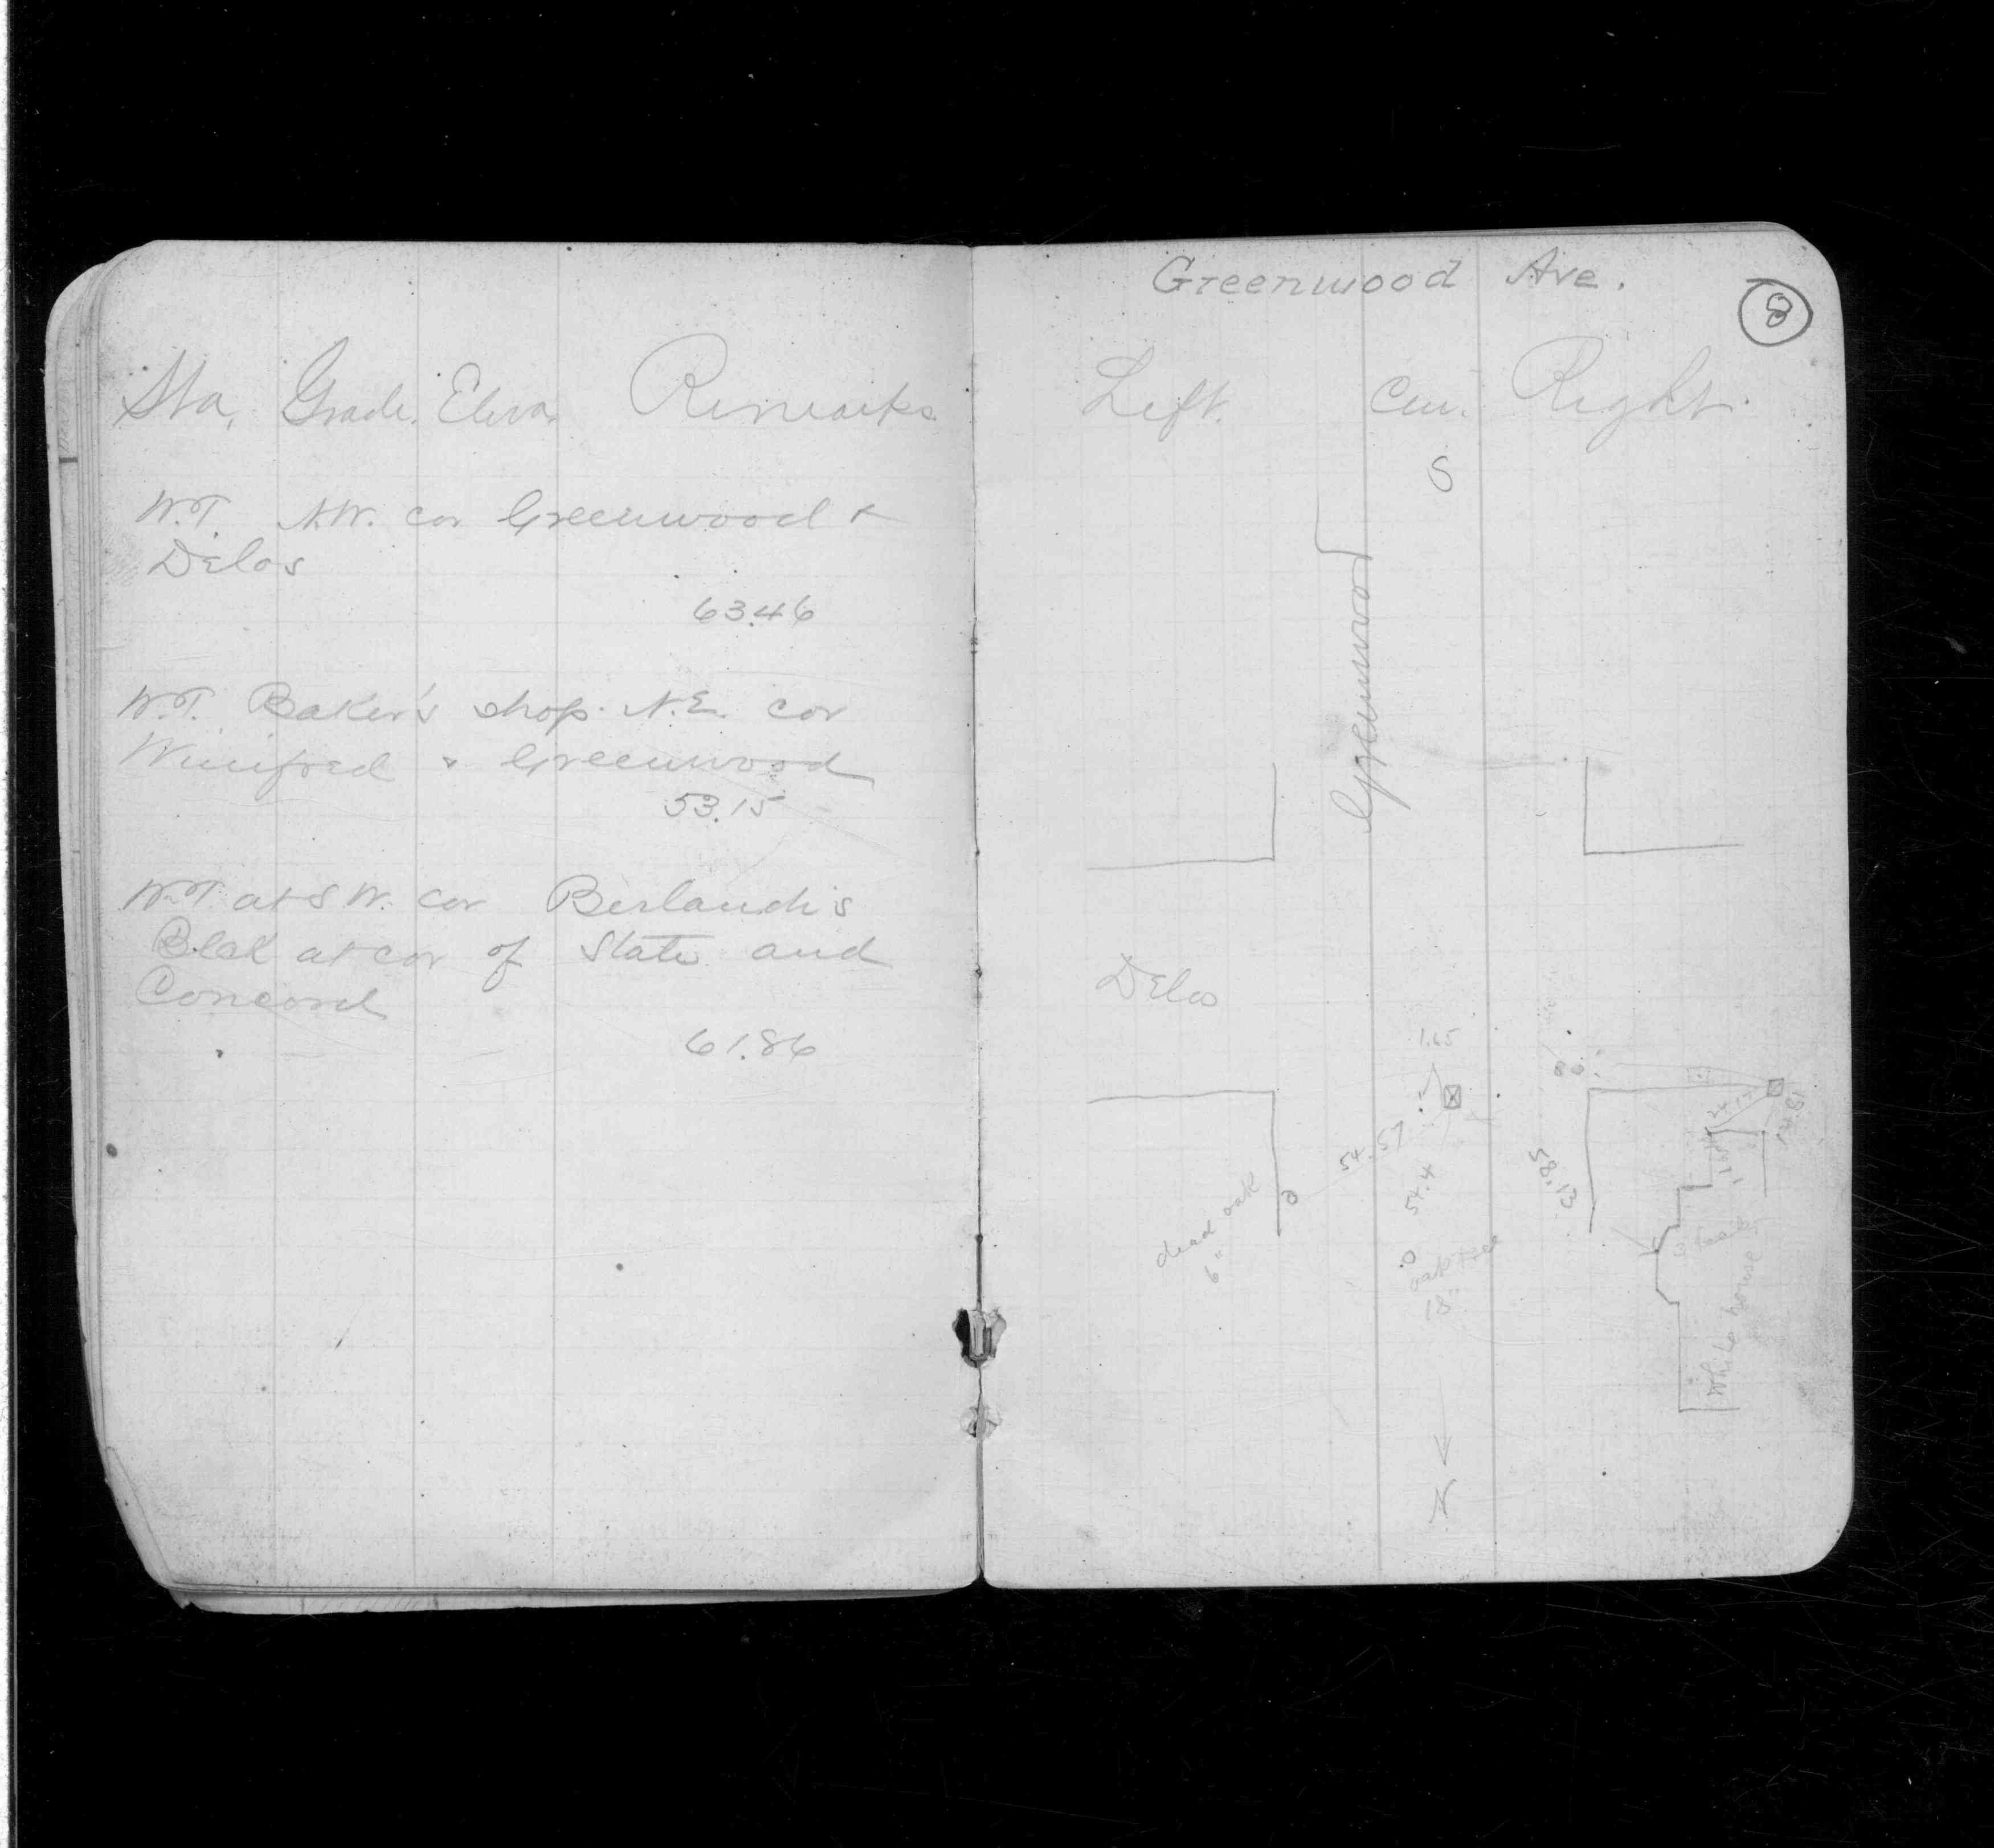 Sta. Grade. Eleva. Remarks
W.T. N.W. cor Greenwood &
Delos
63.46
W.T. Baker's shop. N.E. cor
Winifred & Greenwood
53.15
W.T. at S W. cor
at cor of State and
Concord
61.86
Greenwood Ave.
8
Left. Cen. Right.
S
Greenwood
Delos
1.65
54.57
54.4
58.13
24.17
14.81
dead oak
6"
oak tree
18"
White house
N